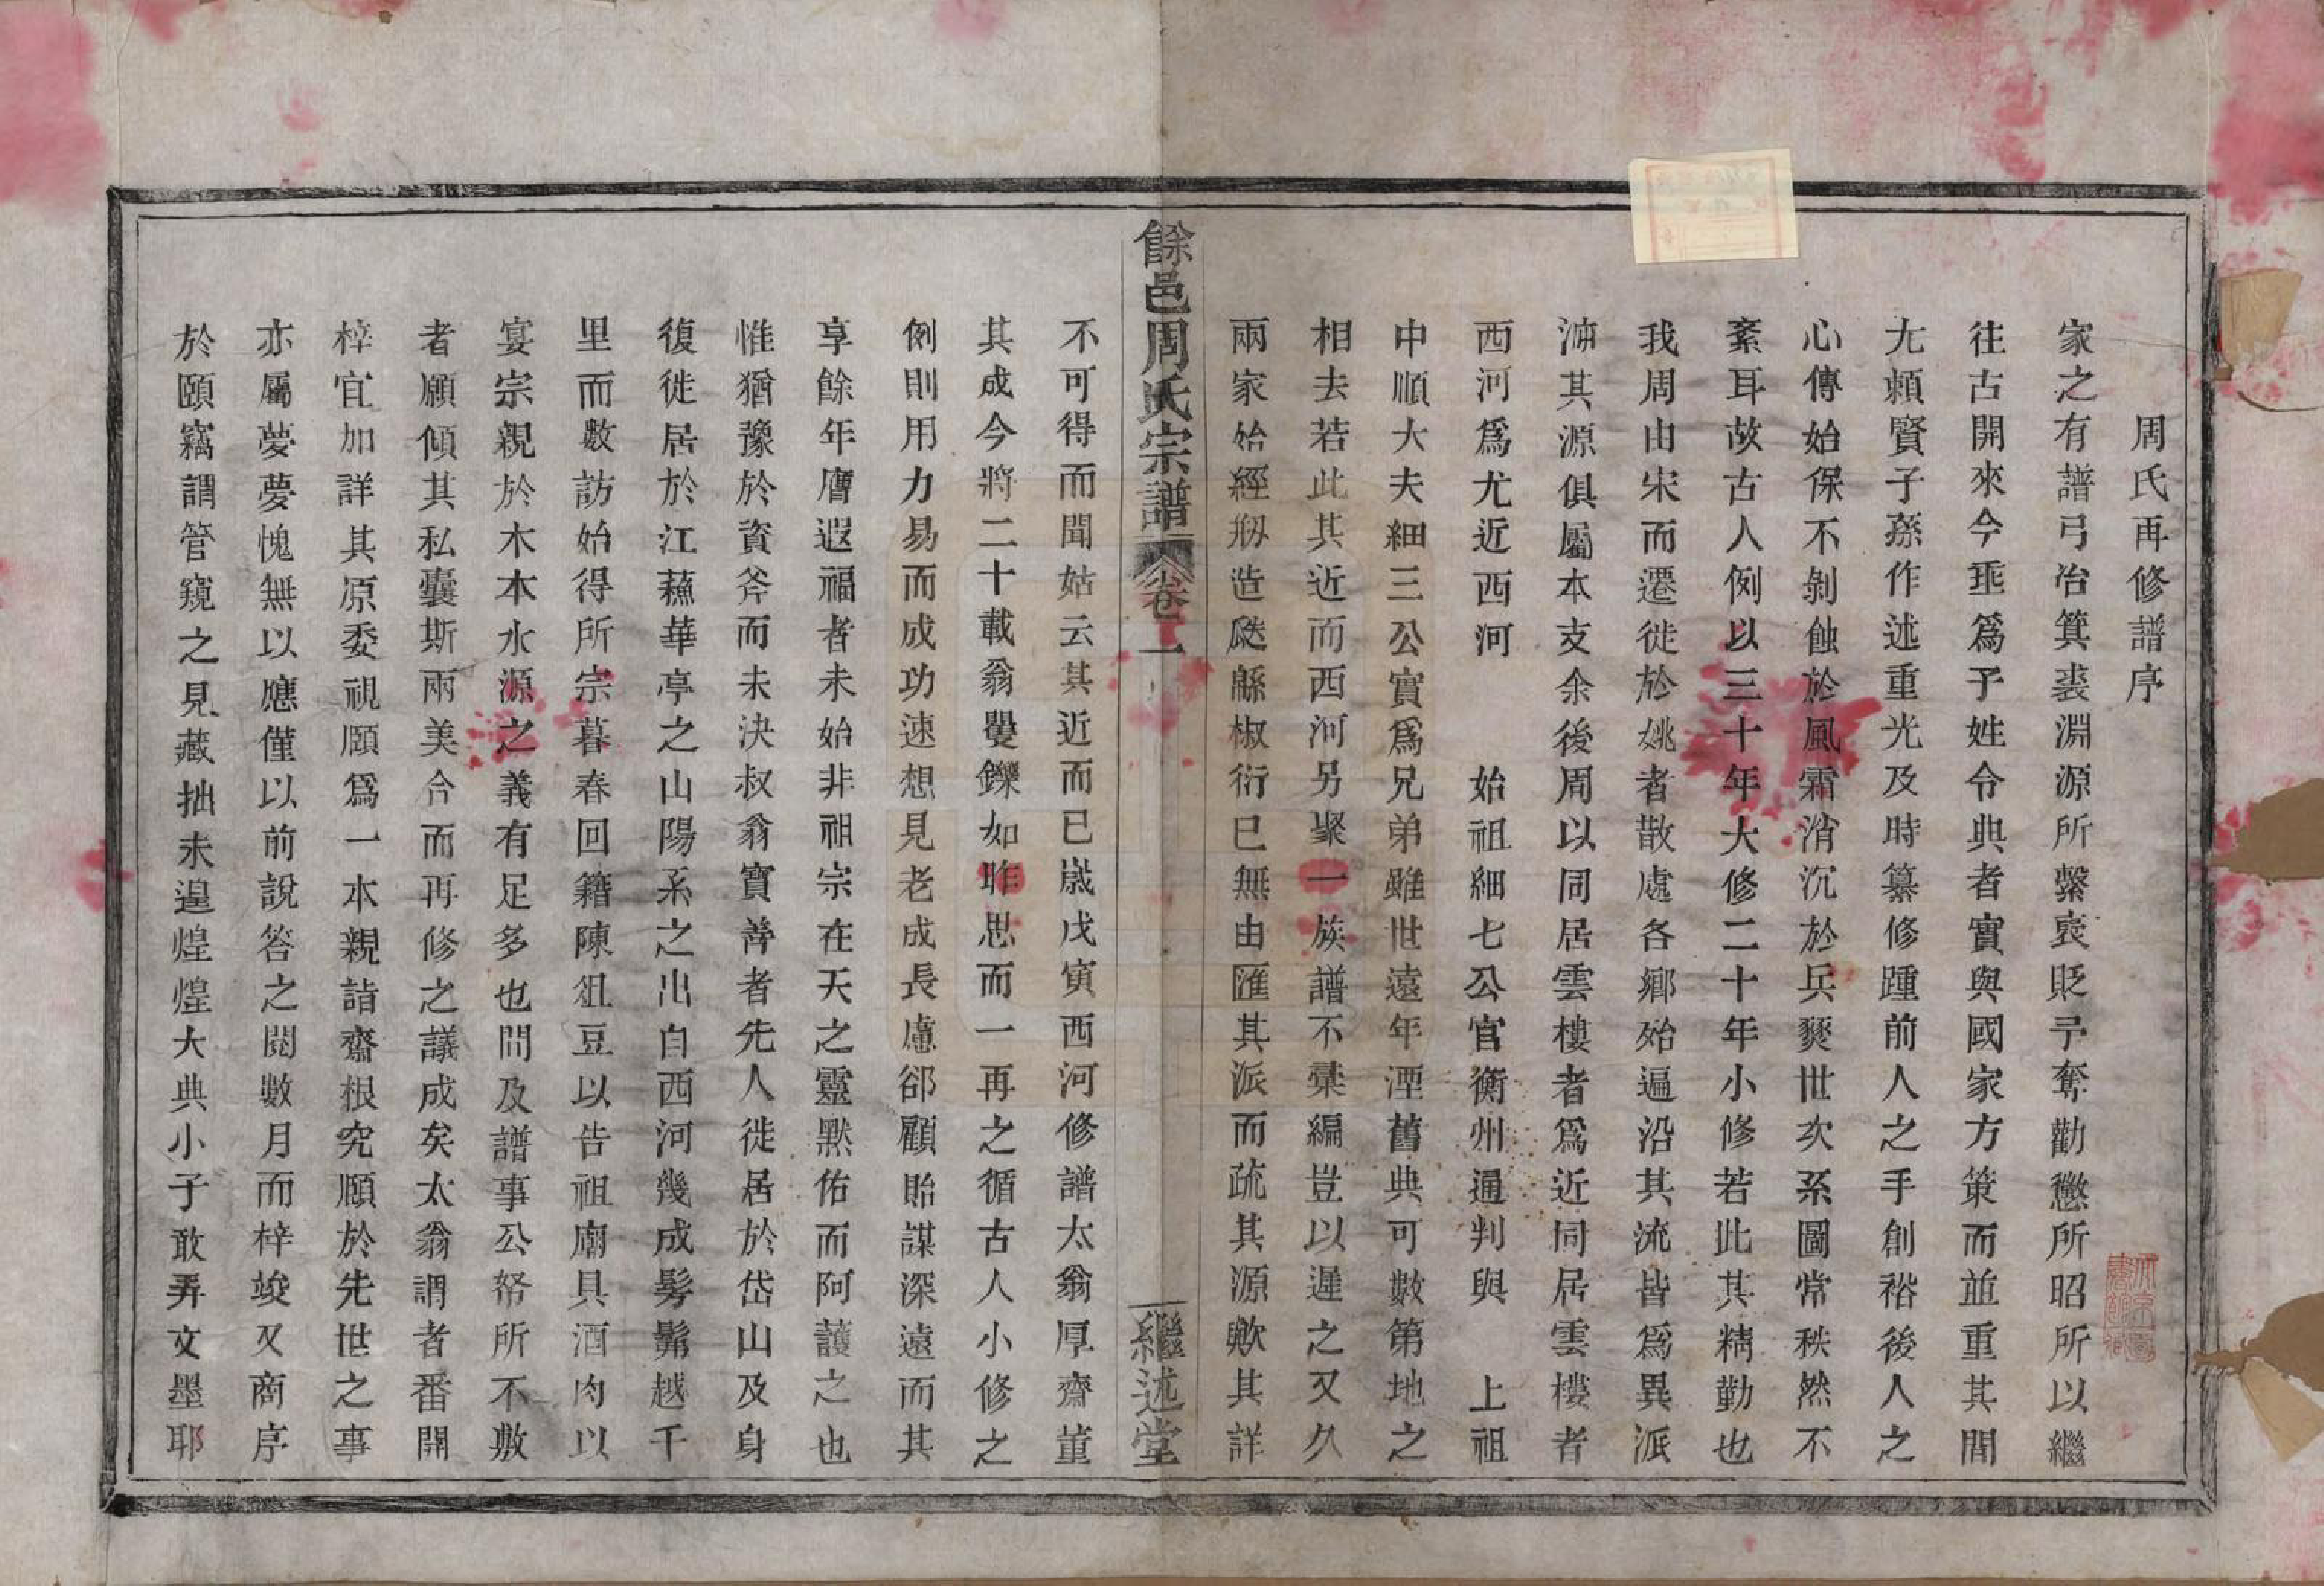 周氏再修譜序
家之有譜弓冶箕裘淵源所繫袞貶予奪勸懲所昭所以繼
往古開來今垂爲予姓令典者實與國家方策而並重其間
尤賴賢子孫作述重光及時纂修踵前人之手創裕後人之
心傳始保不剝蝕於風霜消沉於兵燹世次系圖常秩然不
紊耳故古人例以三十年大修二十年小修若此其精勤也
我周由宋而遷徙於姚者散處各鄉殆遍沿其流皆爲異派
溯其源俱屬本支余後周以同居雲樓者爲近同居雲樓者
西河爲尤近西河　始祖細七公官衡州通判與　上祖
中順大夫細三公實爲兄弟雖世遠年湮舊典可數第地之
相去若此其近而西河另聚一族譜不彙編豈以遲之又久
兩家始經剏造瓞緜椒衍已無由匯其派而疏其源歟其詳
餘邑周氏宗譜　卷一　繼述堂
不可得而聞姑云其近而已歲戊寅西河修譜太翁厚齋董
其成今將二十載翁矍鑠如昨思而一再之循古人小修之
例則用力易而成功速想見老成長慮郤顧貽謀深遠而其
享餘年膺遐福者未始非祖宗在天之靈默佑而阿護之也
惟猶豫於資斧而未決叔翁寶善者先人徙居於岱山及身
復徙居於江蘇華亭之山陽系之出自西河幾成髣髴越千
里而數訪始得所宗暮春回籍陳俎豆以告祖廟具酒肉以
宴宗親於木本水源之義有足多也問及譜事公帑所不敷
者願傾其私囊斯兩美合而再修之議成矣太翁謂者番開
梓宜加詳其原委視願爲一本親詣齋根究願於先世之事
亦屬夢夢愧無以應僅以前說答之閱數月而梓竣又商序
於頤竊謂管窺之見藏拙未遑煌煌大典小子敢弄文墨耶